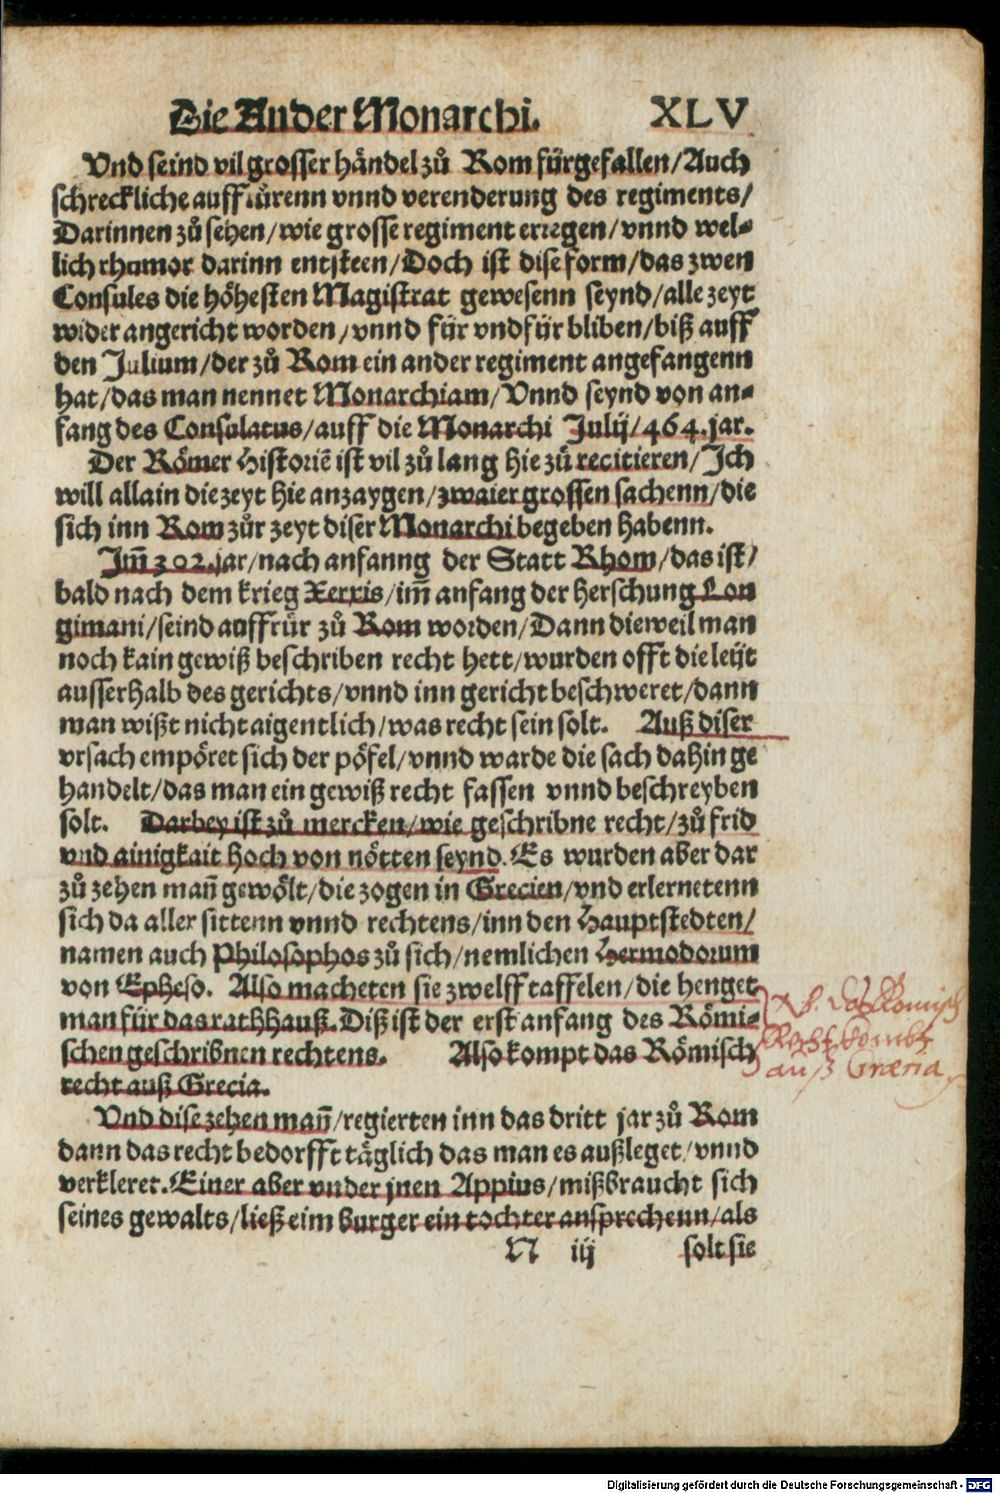 Die Ander Monarchi. XLV
Vnd seind vil grosser händel zů Rom fürgefallen/Auch
schreckliche auffrürenn vnnd verenderung des regiments/
Darinnen zů sehen/wie grosse regiment erregen/vnnd wel-
lich rhumor darinn entsteen/Doch ist dise form/das zwen
Consules die höhesten Magistrat gewesenn seynd/alle zeyt
wider angericht worden/vnnd für vnd für bliben/biß auff
den Julium/der zů Rom ein ander regiment angefangenn
hat/das man nennet Monarchiam/Vnnd seynd von an-
fang des Consulatus/auff die Monarchi Julij/464.jar.
Der Römer Historiē ist vil zů lang hie zů recitieren/Ich
will allain die zeyt hie anzaygen/zwaier grossen sachenn/die
sich inn Rom zůr zeyt diser Monarchi begeben habenn.
Im̄ 302.jar/nach anfanng der Statt Rhom/das ist/
bald nach dem krieg Xerxis/im̄ anfang der herschung Lon
gimani/seind auffrür zů Rom worden/Dann dieweil man
noch kain gewiß beschriben recht hett/wurden offt die leüt
ausserhalb des gerichts/vnnd inn gericht beschweret/dann
man wißt nicht aigentlich/was recht sein solt. Auß diser
vrsach empöret sich der pöfel/vnnd warde die sach dahin ge
handelt/das man ein gewiß recht fassen vnnd beschreyben
solt. Darbey ist zů mercken/wie geschribne recht/zů frid
vnd ainigkait hoch von nötten seynd. Es wurden aber dar
zů zehen man̄ gewölt/die zogen in Grecien/vnd erlernetenn
sich da aller sittenn vnnd rechtens/inn den Hauptstedten/
namen auch Philosophos zů sich/nemlichen Hermodorum
von Epheso. Also macheten sie zwelff taffelen/die henget
man für das rathhauß. Diß ist der erst anfang des Römi-
schen geschribnen rechtens. Also kompt das Römisch
recht auß Grecia.
Vnd dise zehen man̄/regierten inn das dritt jar zů Rom
dann das recht bedorfft täglich das man es außleget/vnnd
verkleret. Einer aber vnder jnen Appius/mißbraucht sich
seines gewalts/ließ eim burger ein tochter ansprechenn/als
N iij solt sie
Das Romisch
Recht kombt
auß Græcia
Digitalisierung gefördert durch die Deutsche Forschungsgemeinschaft - DFG